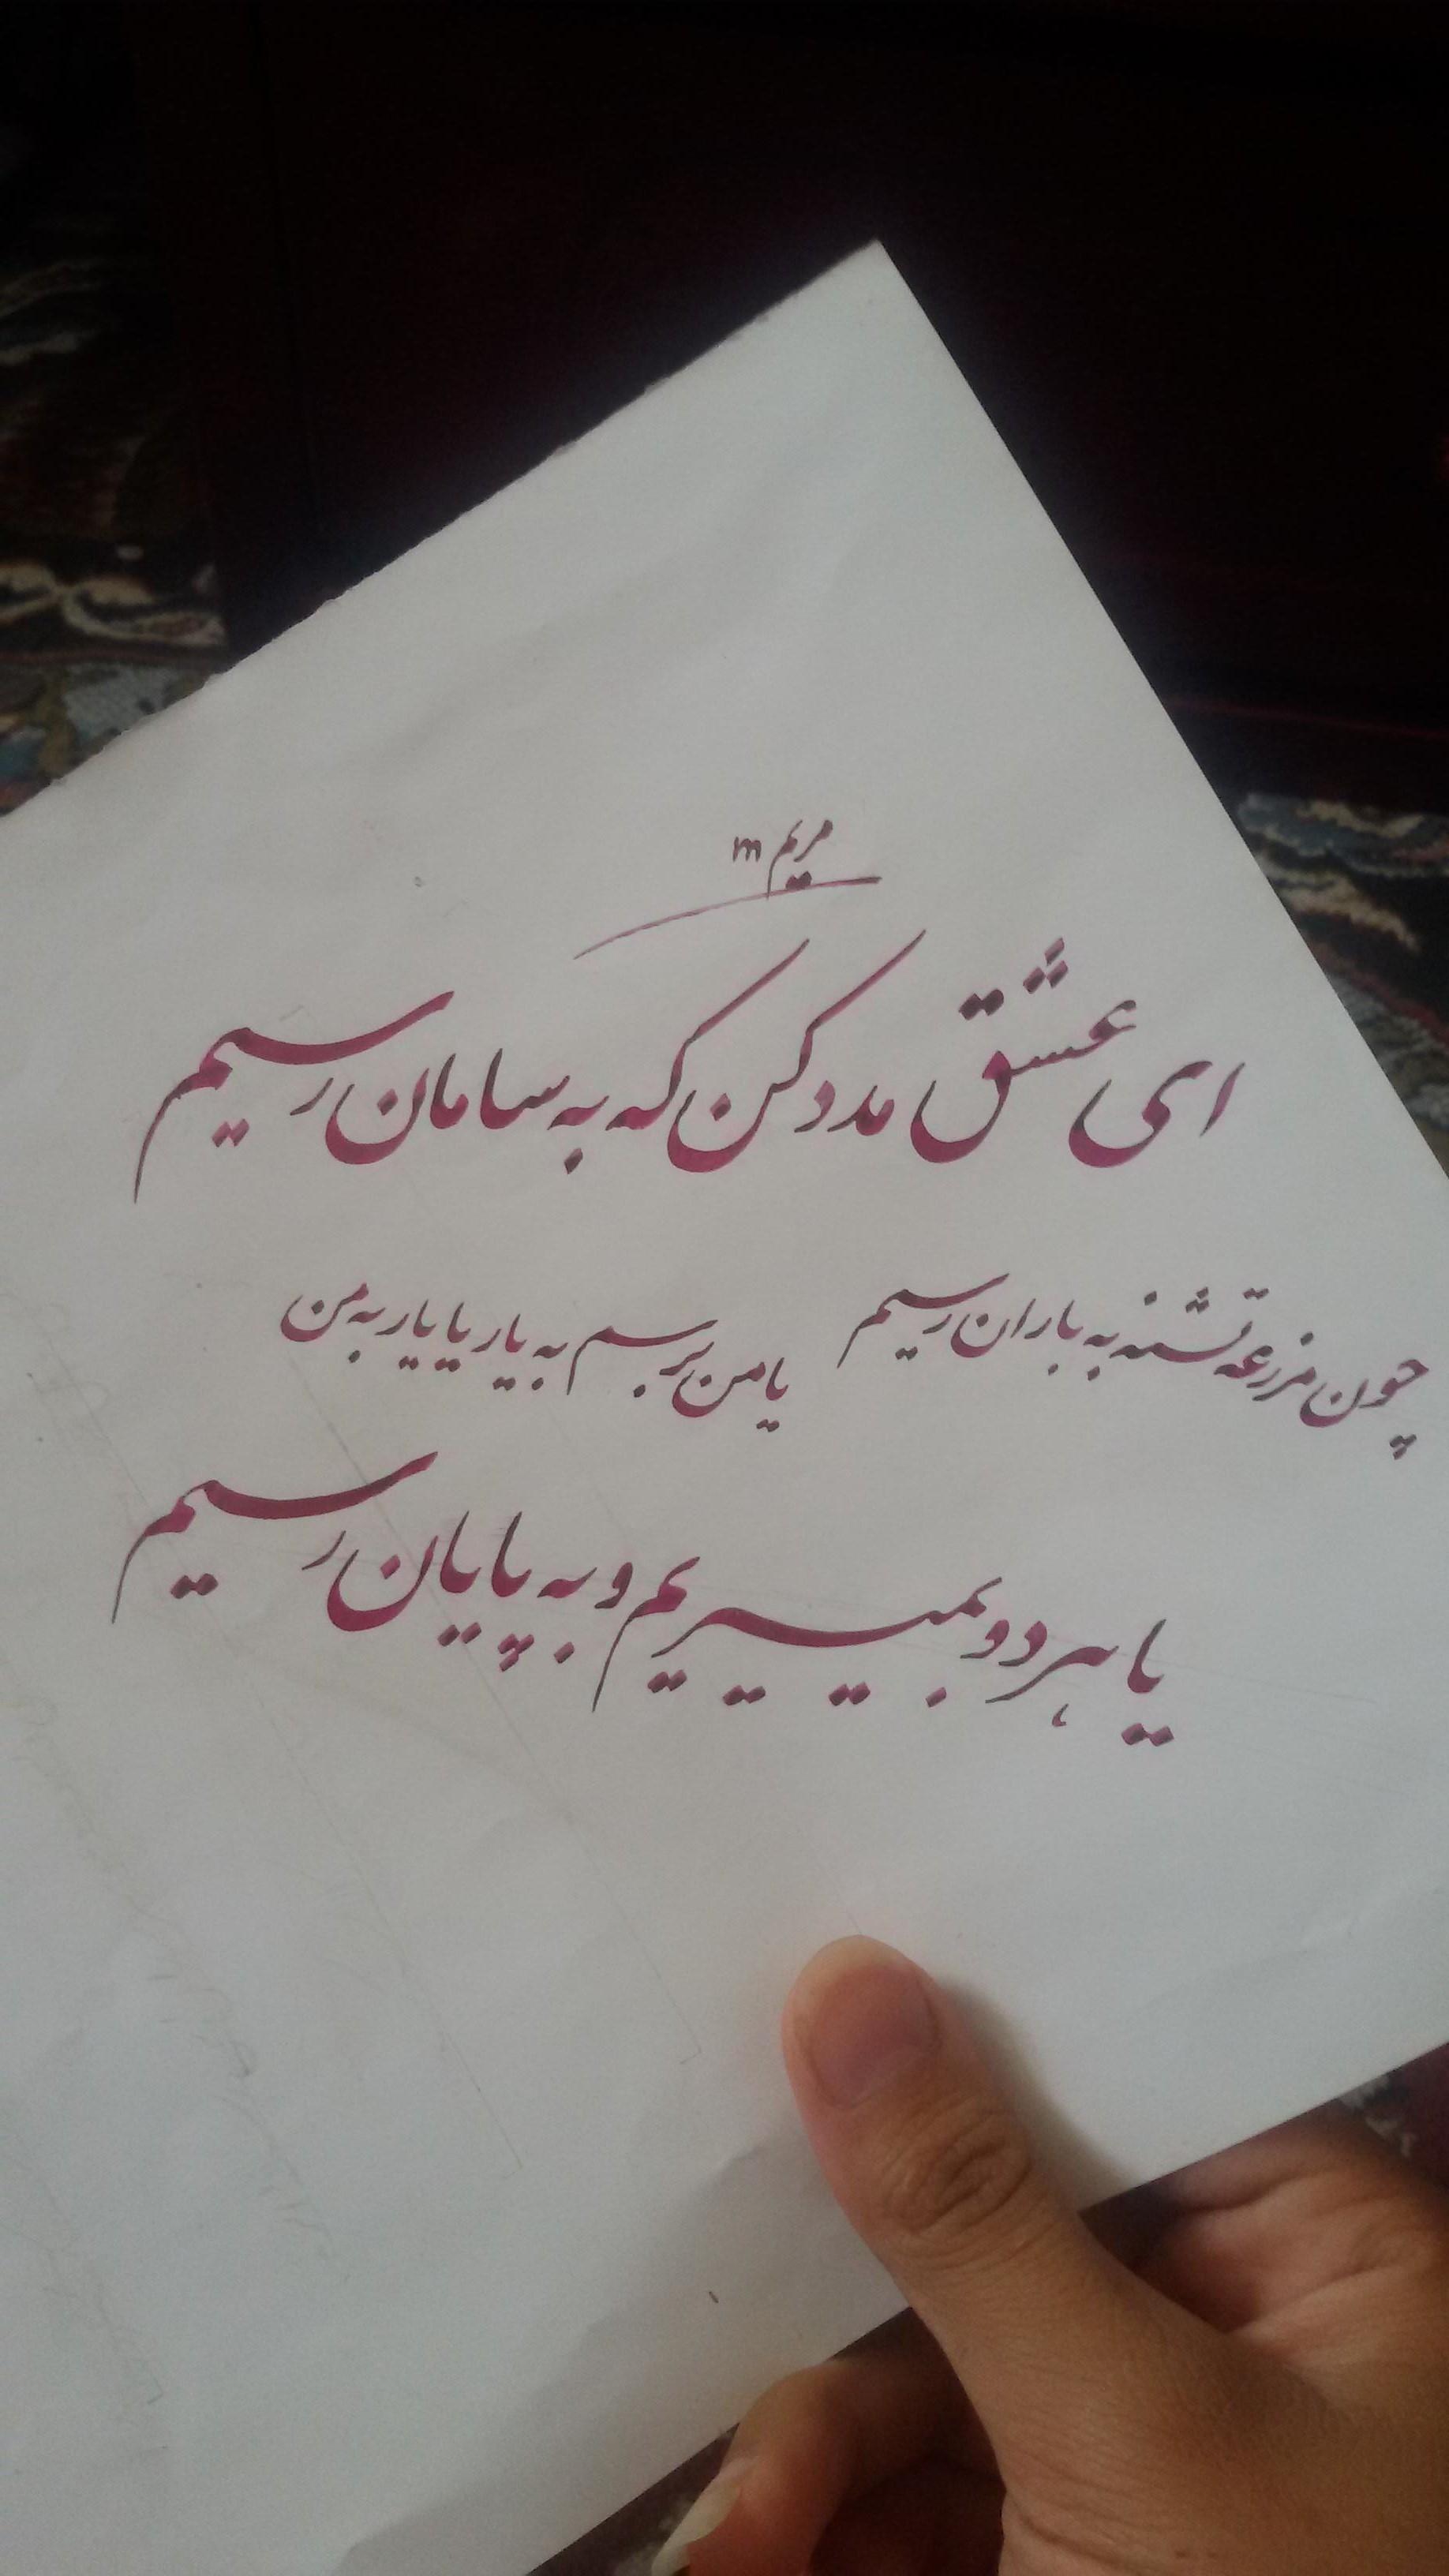 مریم m
ای عشق مدد کن که به سامان رسیم
چون مزرعه تشنه به باران رسیم
یا من برسم به یار یا یار به من
یا هر دو بمیریم و به پایان رسیم